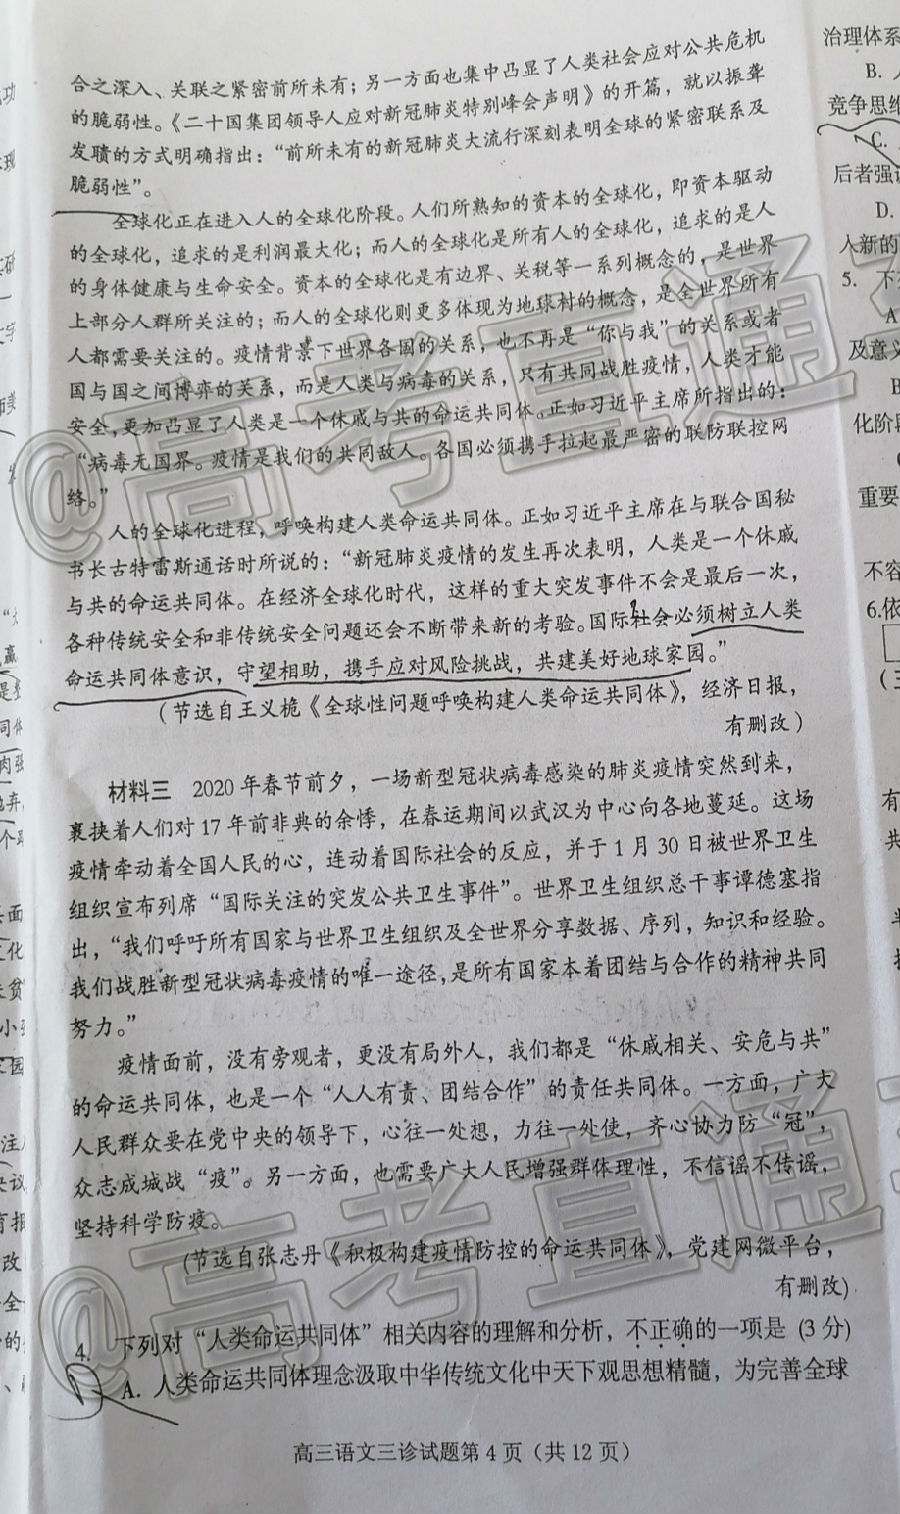 合之深入、关联之紧密前所未有；另一方面也集中凸显了人类社会应对公共危机
的脆弱性。《二十国集团领导人应对新冠肺炎特别峰会声明》的开篇，就以振聋
发聩的方式明确指出：“前所未有的新冠肺炎大流行深刻表明全球的紧密联系及
脆弱性”。
全球化正在进入人的全球化阶段。人们所熟知的资本的全球化，即资本驱动
的全球化，追求的是利润最大化；而人的全球化是所有人的全球化，追求的是人
的身体健康与生命安全。资本的全球化是有边界、关税等一系列概念的，是世界
上部分人群所关注的；而人的全球化则更多体现为地球村的概念，是全世界所有
人都需要关注的。疫情背景下世界各国的关系，也不再是“你与我”的关系或者
国与国之间博弈的关系，而是人类与病毒的关系，只有共同战胜疫情，人类才能
安全，更加凸显了人类是一个休戚与共的命运共同体。正如习近平主席所指出的：
“病毒无国界。疫情是我们的共同敌人。各国必须携手拉起最严密的联防联控网
络。”
人的全球化进程，呼唤构建人类命运共同体。正如习近平主席在与联合国秘
书长古特雷斯通话时所说的：“新冠肺炎疫情的发生再次表明，人类是一个休戚
与共的命运共同体。在经济全球化时代，这样的重大突发事件不会是最后一次，
各种传统安全和非传统安全问题还会不断带来新的考验。国际社会必须树立人类
命运共同体意识，守望相助，携手应对风险挑战，共建美好地球家园。”
（节选自王义桅《全球性问题呼唤构建人类命运共同体》，经济日报，
有删改）
材料三 2020年春节前夕，一场新型冠状病毒感染的肺炎疫情突然到来，
裹挟着人们对17年前非典的余悸，在春运期间以武汉为中心向各地蔓延。这场
疫情牵动着全国人民的心，连动着国际社会的反应，并于1月30日被世界卫生
组织宣布列席“国际关注的突发公共卫生事件”。世界卫生组织总干事谭德塞指
出，“我们呼吁所有国家与世界卫生组织及全世界分享数据、序列，知识和经验。
我们战胜新型冠状病毒疫情的唯一途径，是所有国家本着团结与合作的精神共同
努力。”
疫情面前，没有旁观者，更没有局外人，我们都是“休戚相关、安危与共”
的命运共同体，也是一个“人人有责、团结合作”的责任共同体。一方面，广大
人民群众要在党中央的领导下，心往一处想，力往一处使，齐心协力防“冠”，
众志成城战“疫”。另一方面，也需要广大人民增强群体理性，不信谣不传谣，
坚持科学防疫。
(节选自张志丹《积极构建疫情防控的命运共同体》，党建网微平台，
有删改)
4. 下列对“人类命运共同体”相关内容的理解和分析，不正确的一项是 (3分)
A. 人类命运共同体理念汲取中华传统文化中天下观思想精髓，为完善全球
高三语文三诊试题第4页（共12页）
治理体系
B.
竞争思维
C.
后者强调
D.
入新的
5. 不
A
及意义
B
化阶段
重要
不容
6.依
有
共
@高考直通
@高考直通